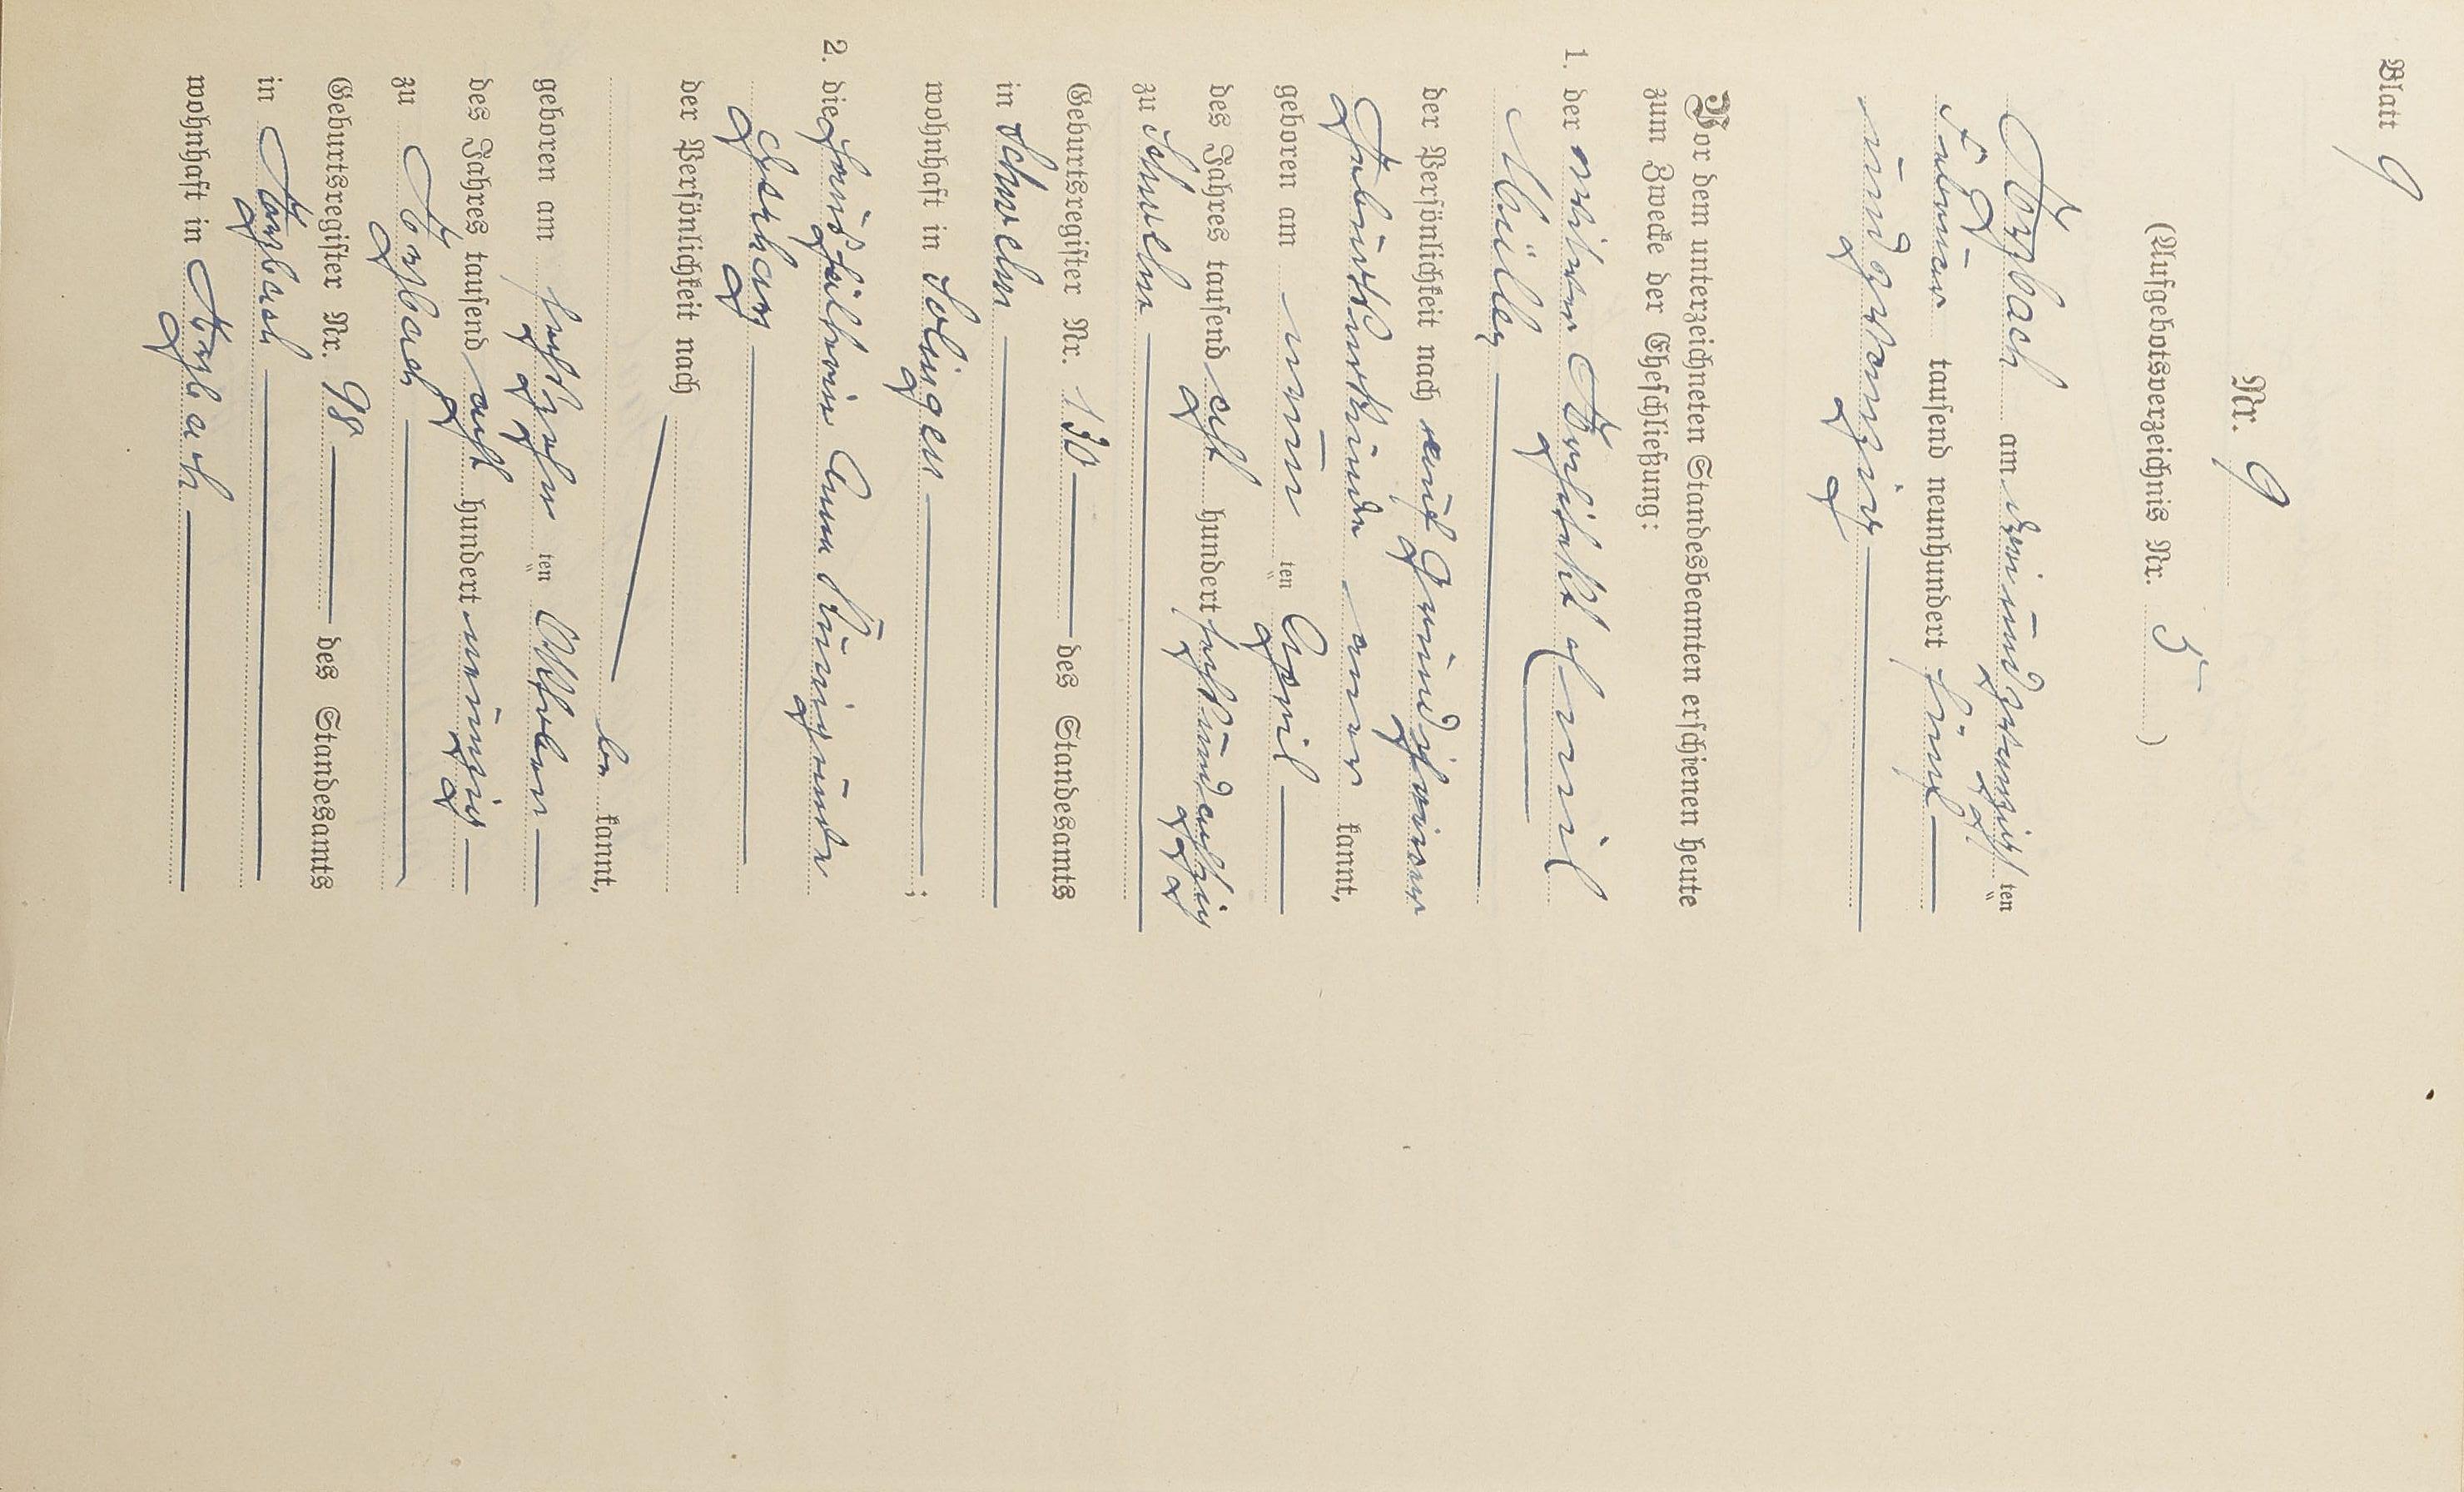 Blatt 9
Nr. 9
(Aufgebotsverzeichnis Nr. 5)
Forbach am dreiundzwanzigsten
Februar tausend neunhundert fünf
und zwanzig
Vor dem unterzeichneten Standesbeamten erschienen heute
zum Zwecke der Eheschließung:
1. der Architekt Emil
Müller
der Persönlichkeit nach auf Grund seiner
Geburtsurkunde aner kannt,
geboren am neun ten April
des Jahres tausend acht hundert sechsundachtzig
zu Schwelm
Geburtsregister Nr. 130 des Standesamts
in Schwelm
wohnhaft in Solingen ;
2. die Haushälterin Anna Kunigunde
der Persönlichkeit nach
be kannt,
geboren am sechszehn ten Oktober
des Jahres tausend acht hundert neunzig
zu Forbach
Geburtsregister Nr. 98 des Standesamts
in Forbach
wohnhaft in Forbach